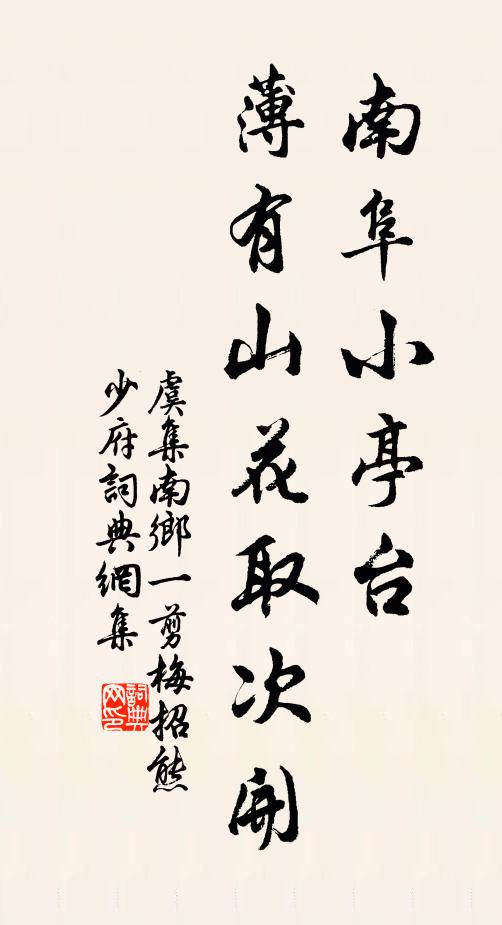 南阜小亭台
薄有山花取次開
虞集南鄉一剪梅招熊
少府詞典網集
詞典
网印